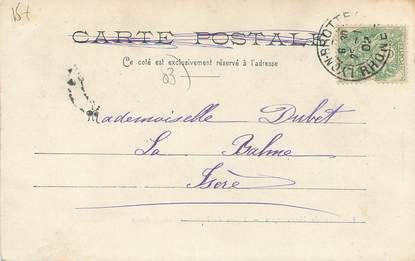 15+
CARTE POSTALE
Ce coté est exclusivement réservé à l'adresse
LYON-BROTTEAUX RHONE
Mademoiselle Dubet
La Balme
Isère